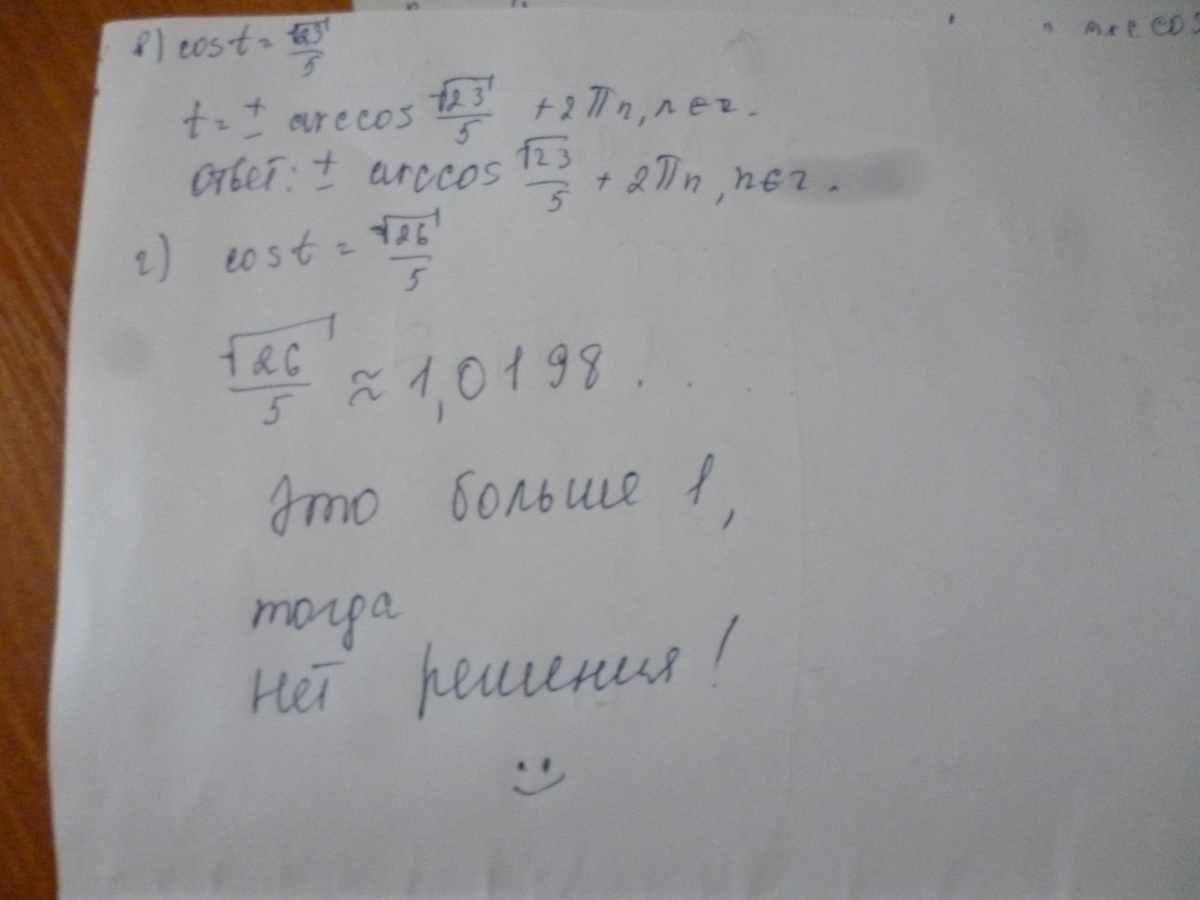 в) cos t = √23/5
t = ± arccos √23/5 + 2πn, n ∈ z.
Ответ: ± arccos √23/5 + 2πn, n ∈ z.
г) cos t = √26/5
√26/5 ≈ 1,0198...
Это больше 1,
тогда
нет решения!